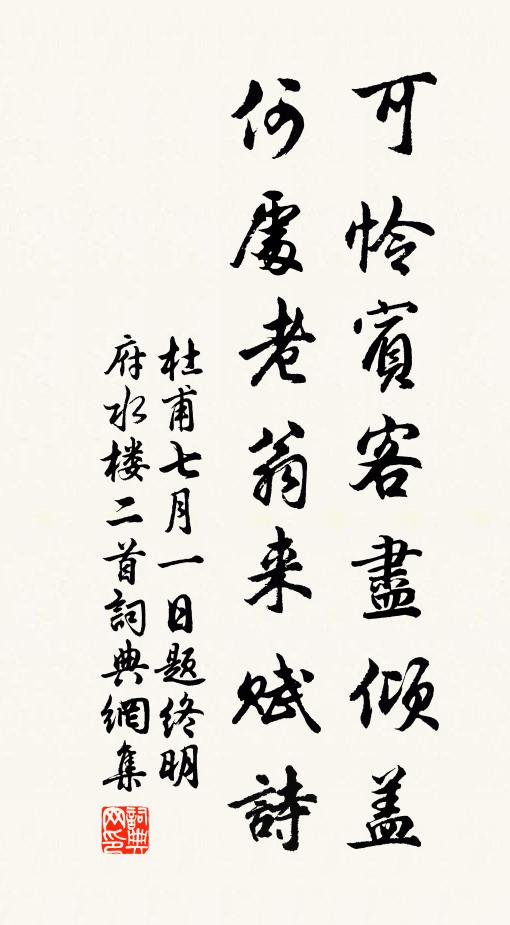 可怜賓客盡傾盖
何處老翁来賦詩
杜甫七月一日题终明
府水楼二首詞典網集
詞典
网印